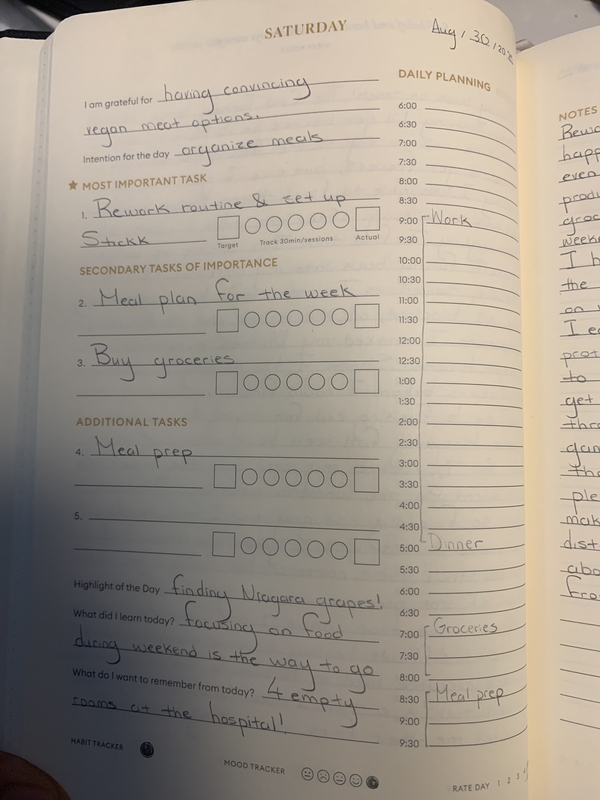 SATURDAY
Aug / 30 / 20
I am grateful for having convincing
vegan meat options.
Intention for the day organize meals
MOST IMPORTANT TASK
1. Rework routine & set up
Stickk
Target Track 30min/sessions Actual
SECONDARY TASKS OF IMPORTANCE
2. Meal plan for the week
3. Buy groceries
ADDITIONAL TASKS
4. Meal prep
5.
Highlight of the Day finding Niagara grapes!
What did I learn today? focusing on food
during weekend is the way to go
What do I want to remember from today? 4 empty
rooms at the hospital!
HABIT TRACKER
MOOD TRACKER
DAILY PLANNING
6:00
6:30
7:00
7:30
8:00
8:30
9:00 Work
9:30
10:00
10:30
11:00
11:30
12:00
12:30
1:00
1:30
2:00
2:30
3:00
3:30
4:00
4:30
5:00 Dinner
5:30
6:00
6:30
7:00 Groceries
7:30
8:00
8:30 Meal prep
9:00
9:30
RATE DAY 1 2 3
NOTES
happ
even
produ
groc
week
I h
the
on
I ea
prot
to
get
thro
gan
The
ple
mak
dist
abo
fro